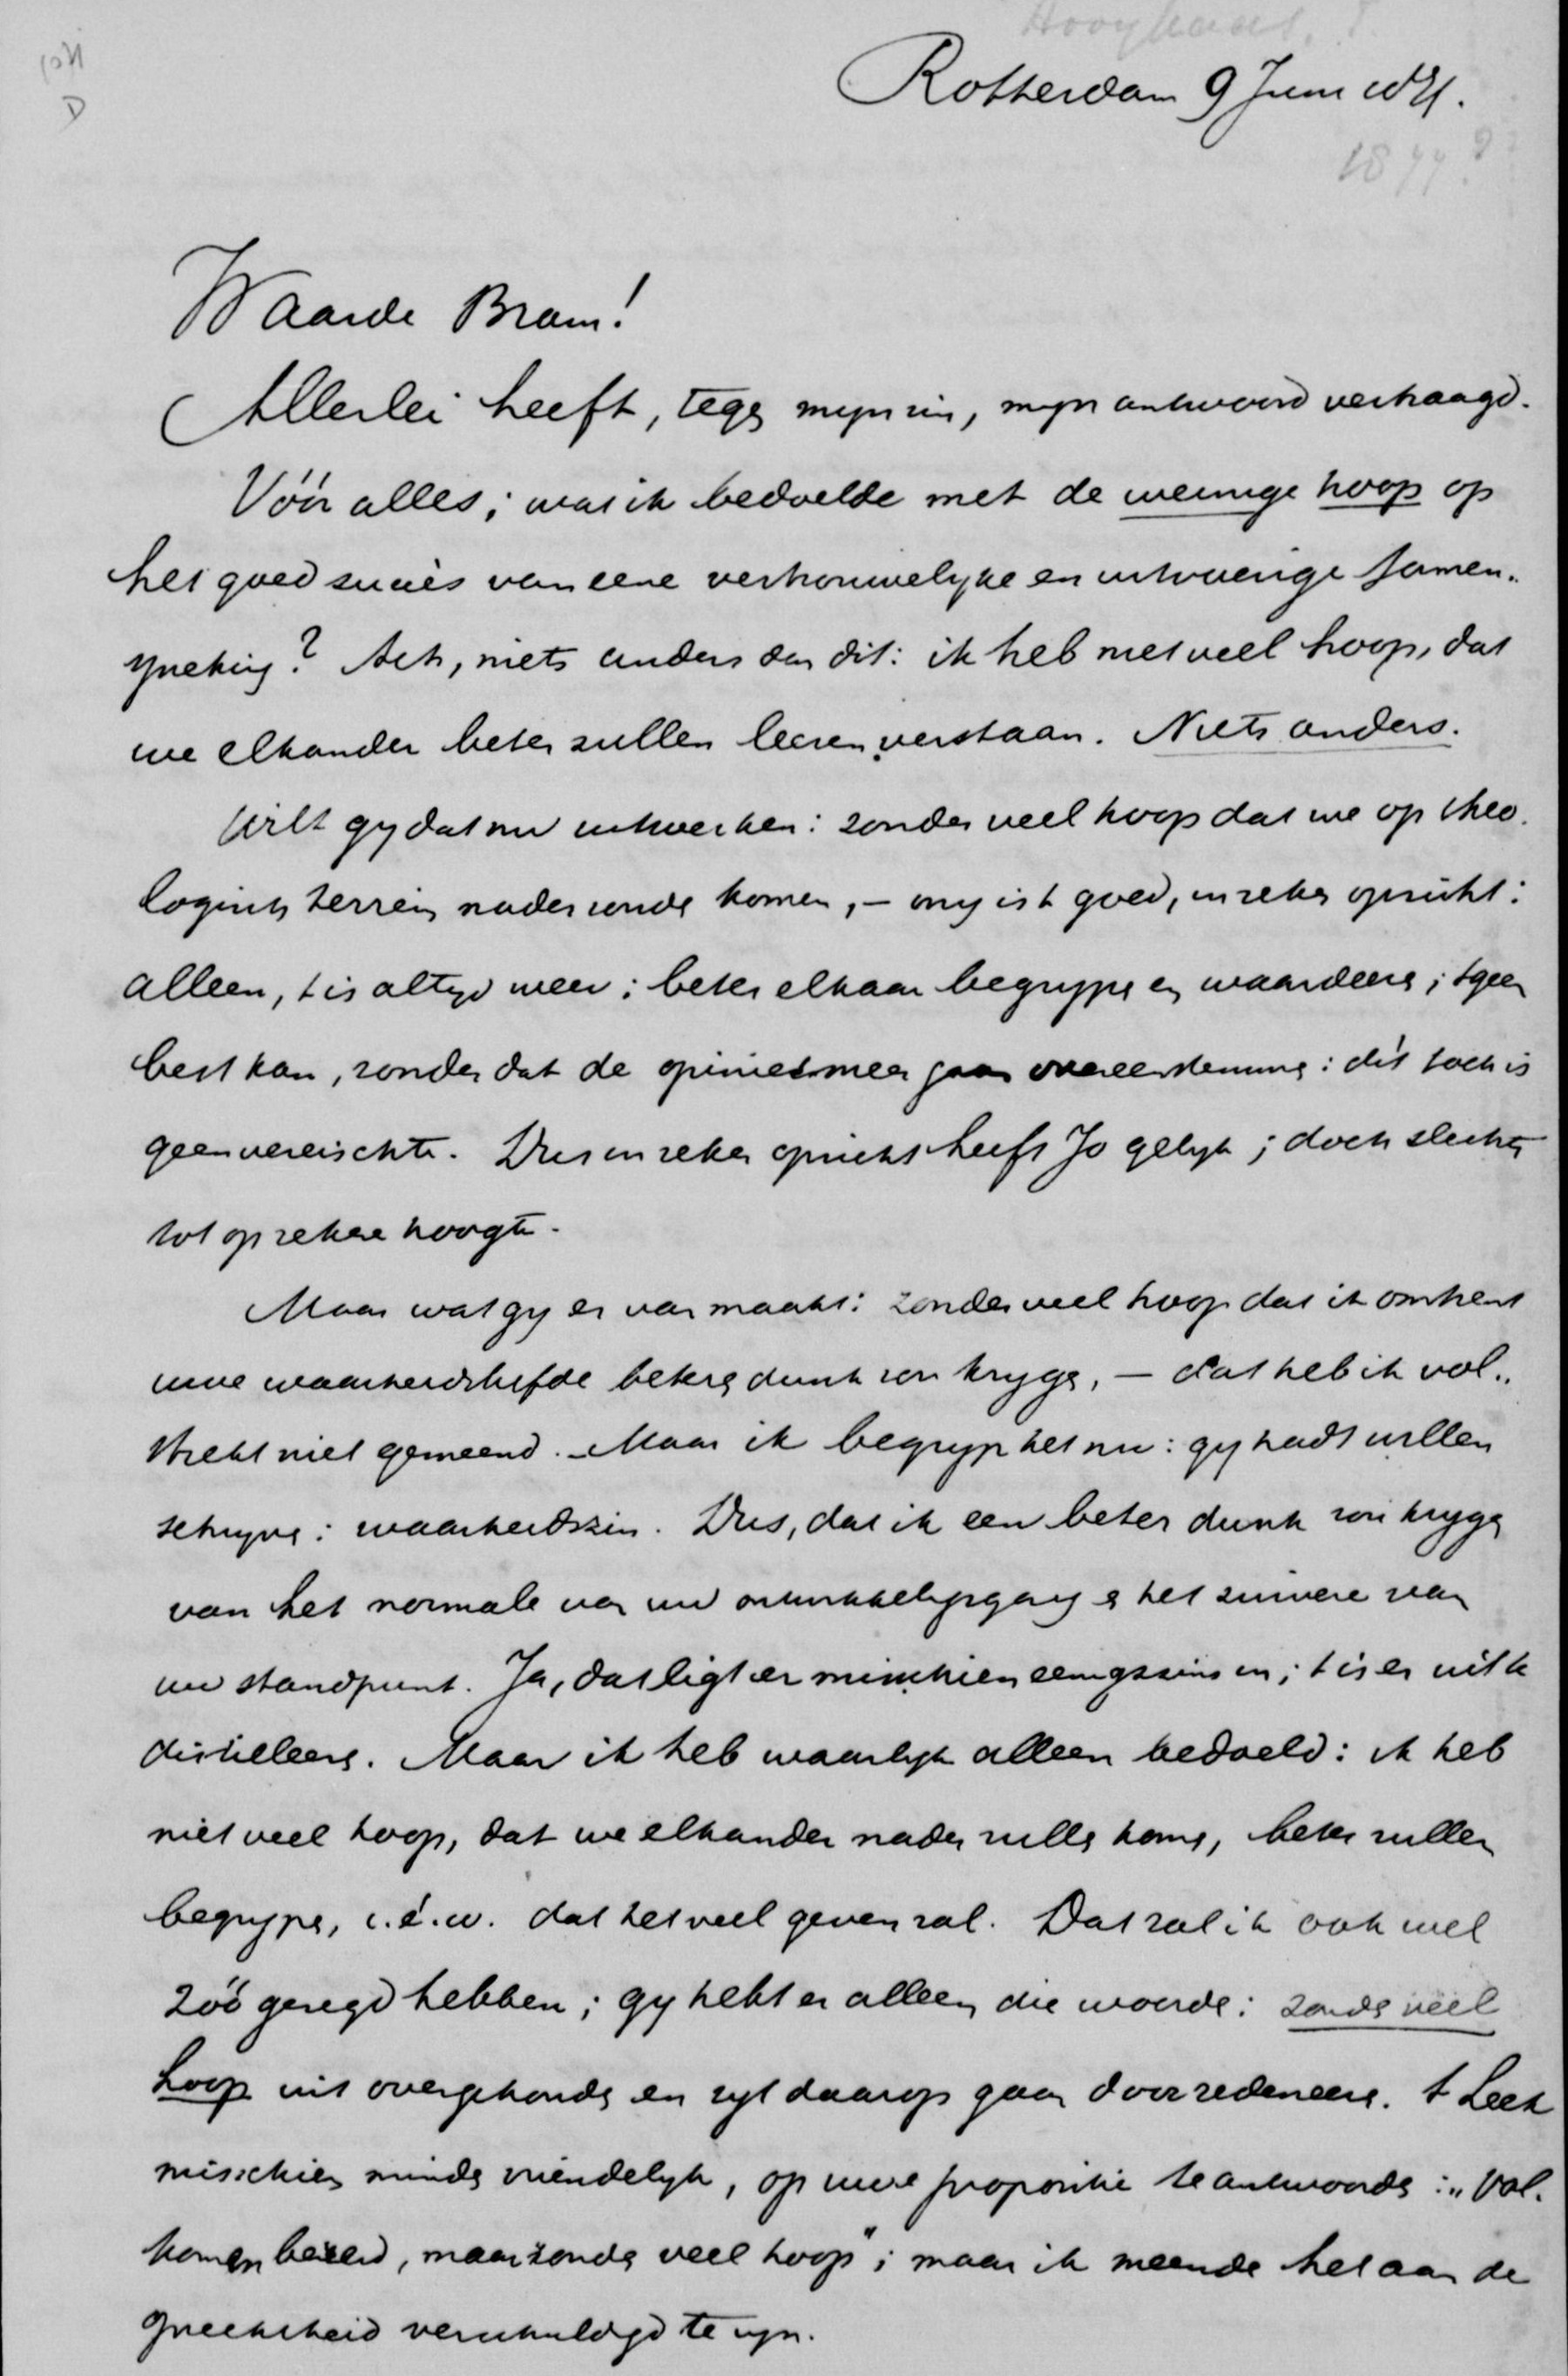 Rotterdam 9 Juni
18
Waarde Bram!
Allerlei heeft, tegen mijn zin, mijn antwoord vertraagd.
Vóór alles; wat ik bedoelde met de weinige hoop op
het goed succès van eene vertrouwelijke en uitvoerige samen-
spreking? Ach, niets anders dan dit: ik heb niet veel hoop, dat
we elkander beter zullen leeren verstaan. Niets anders.
Wilt gij dat nu uitwerken: zonder veel hoop dat we op theo-
logisch terrein nader zouden komen, – mij is 't goed, in zeker opzicht:
alleen, 't is altijd meer: beter elkaar begrijpen en waardeeren; 'tgeen
best kan, zonder dat de opinies meer gaan overeenstemmen: dit toch is
geen vereischte. Dus in zeker opzicht heeft Jo gelijk; doch slechts
tot op zekere hoogte.
Maar wat gij er van maakt: zonder veel hoop dat ik omtrent
uwe waarheidsliefde betere dunk zou krijgen, – dat heb ik vol-
strekt niet gemeend. – Maar ik begrijp het nu: gij hadt willen
schrijven: waarheidszin. Dus, dat ik een beter dunk zou krijgen
van het normale van uw ontwikkelingsgang en het zuivere van
uw standpunt. Ja, dat ligt er misschien eenigszins in; 't is er uit te
distilleeren. Maar ik heb waarlijk alleen bedoeld: ik heb
niet veel hoop, dat we elkander nader zullen komen, beter zullen
begrijpen, i.é.w. dat het veel geven zal. Dat zal ik ook wel
zóó gezegd hebben; gij hebt er alleen die woorden: zonder veel
hoop uit overgehouden en zijt daarop gaan doorredeneeren. 't Leek
misschien minder vriendelijk, op uwe propositie te antwoorden: „Vol-
komen bereid, maar zonder veel hoop"; maar ik meende het aan de
oprechtheid verschuldigd te zijn.